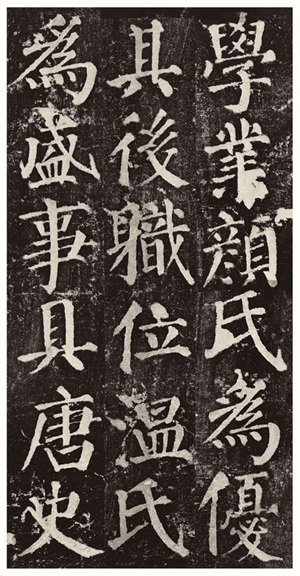 學業顔氏為優
其後職位溫氏
為盛事具唐史